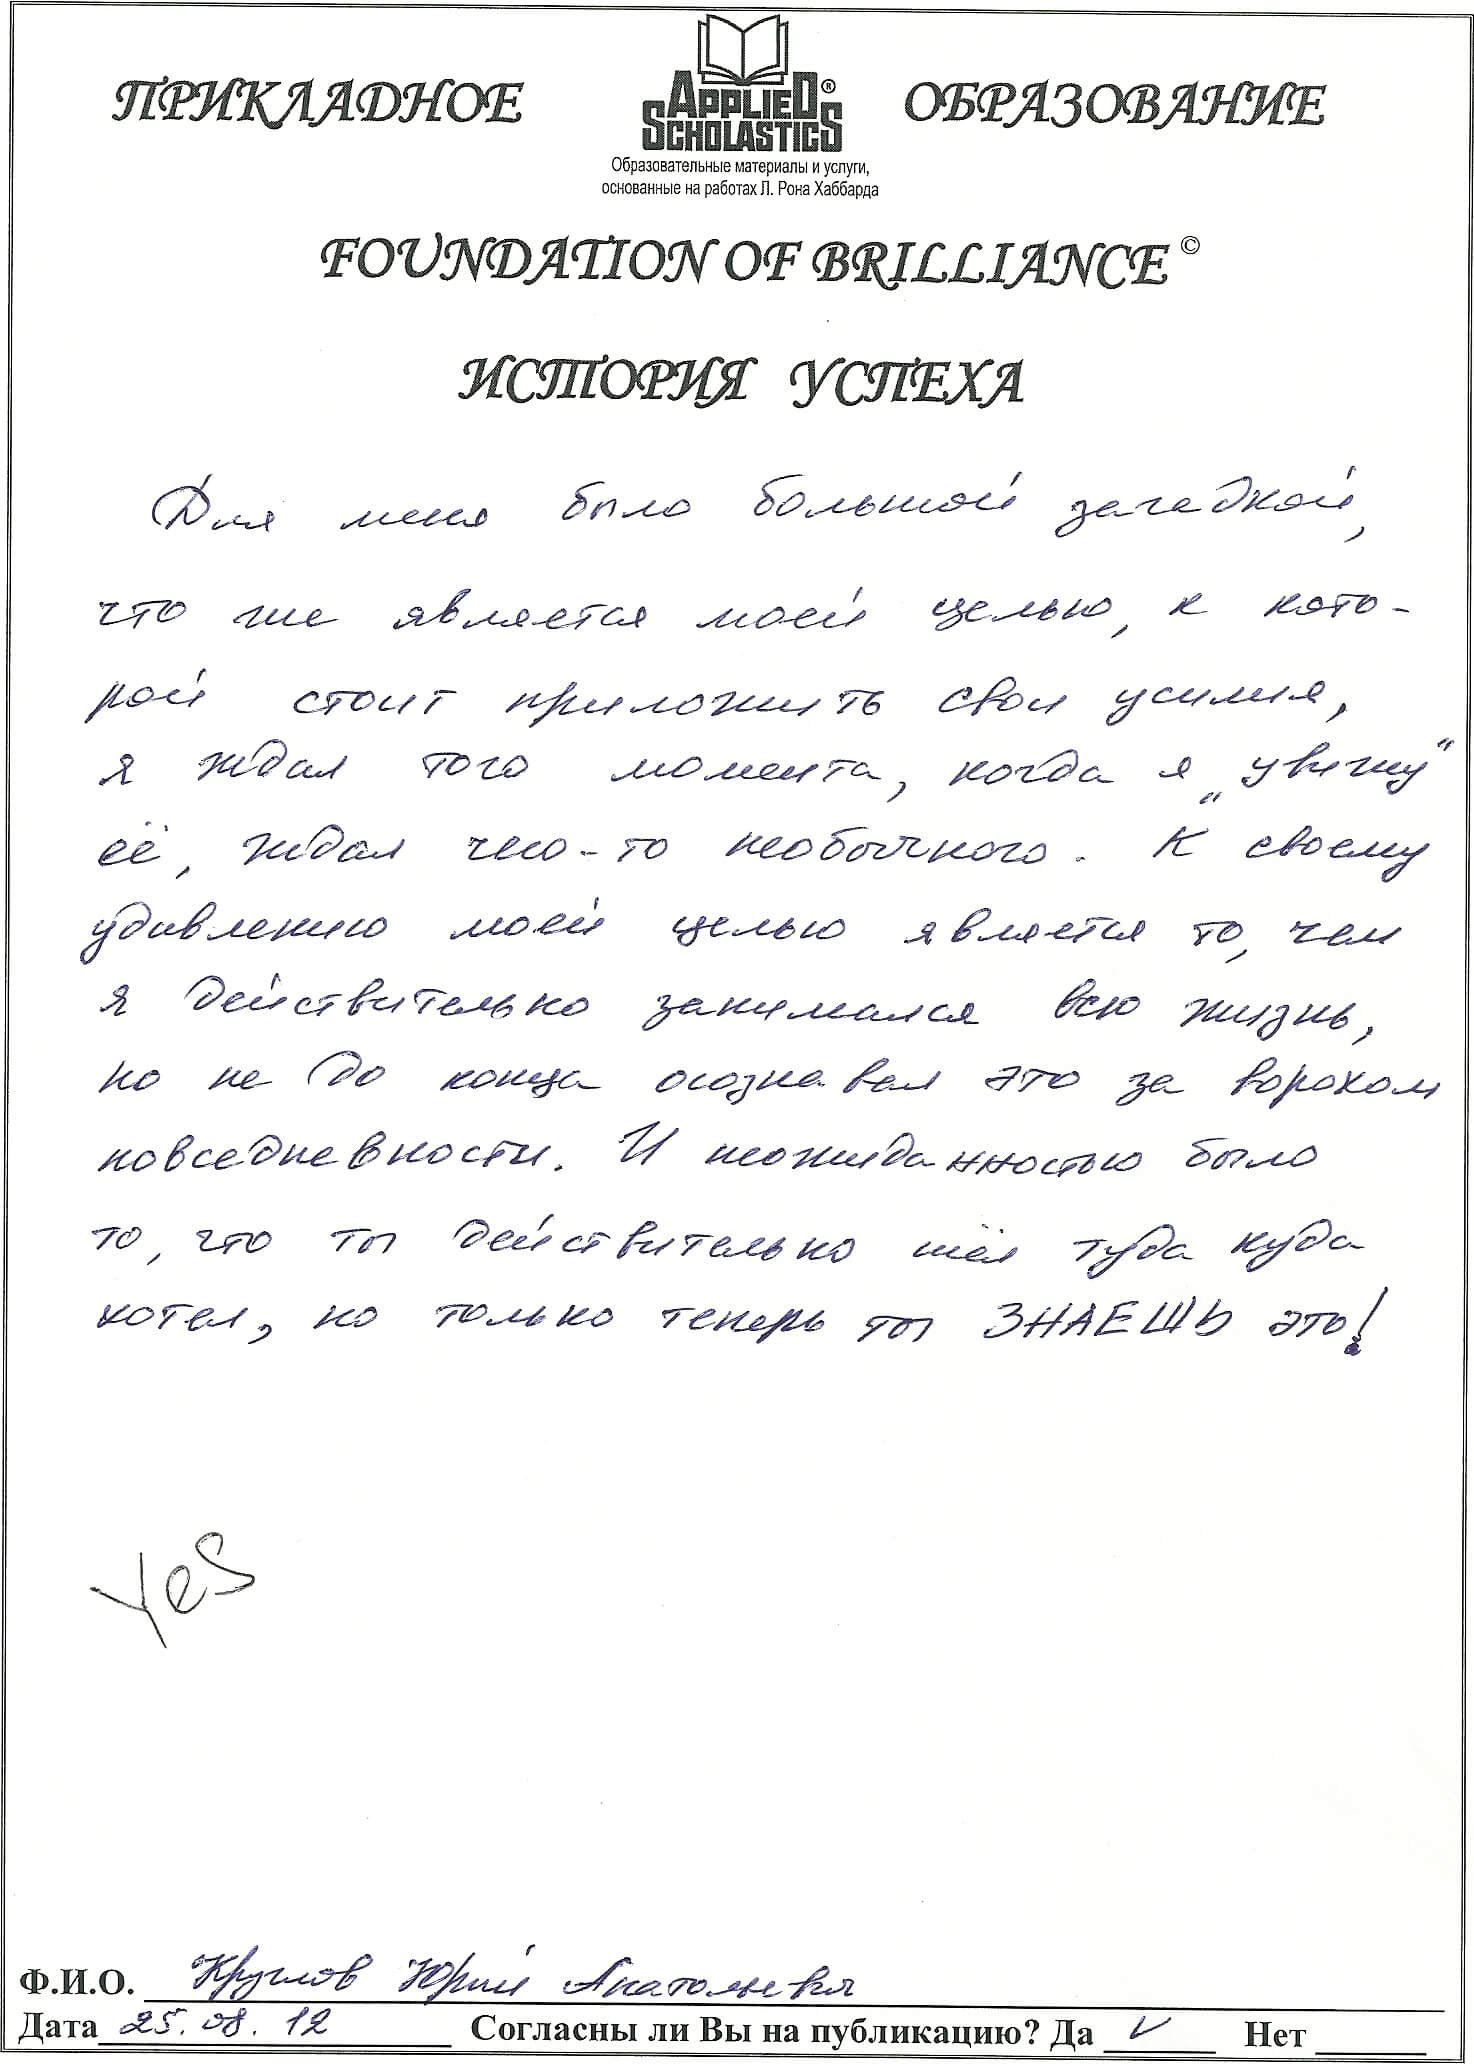 ПРИКЛАДНОЕ APPLIED SCHOLASTICS® ОБРАЗОВАНИЕ
Образовательные материалы и услуги,
основанные на работах Л. Рона Хаббарда
FOUNDATION OF BRILLIANCE©
ИСТОРИЯ УСПЕХА
Для меня было большой загадкой,
что же является моей целью, к кото-
рой стоит приложить свои усилия,
я ждал того момента, когда я „увижу“
её, ждал чего-то необычного. К своему
удивлению моей целью является то, чем
я действительно занимался всю жизнь,
но не до конца осознавал это за ворохом
повседневности. И неожиданностью было
то, что ты действительно шёл туда куда
хотел, но только теперь ты ЗНАЕШЬ это!
Yes
Ф.И.О. Круглов Юрий Анатольевич
Дата 25.08.12 Согласны ли Вы на публикацию? Да V Нет